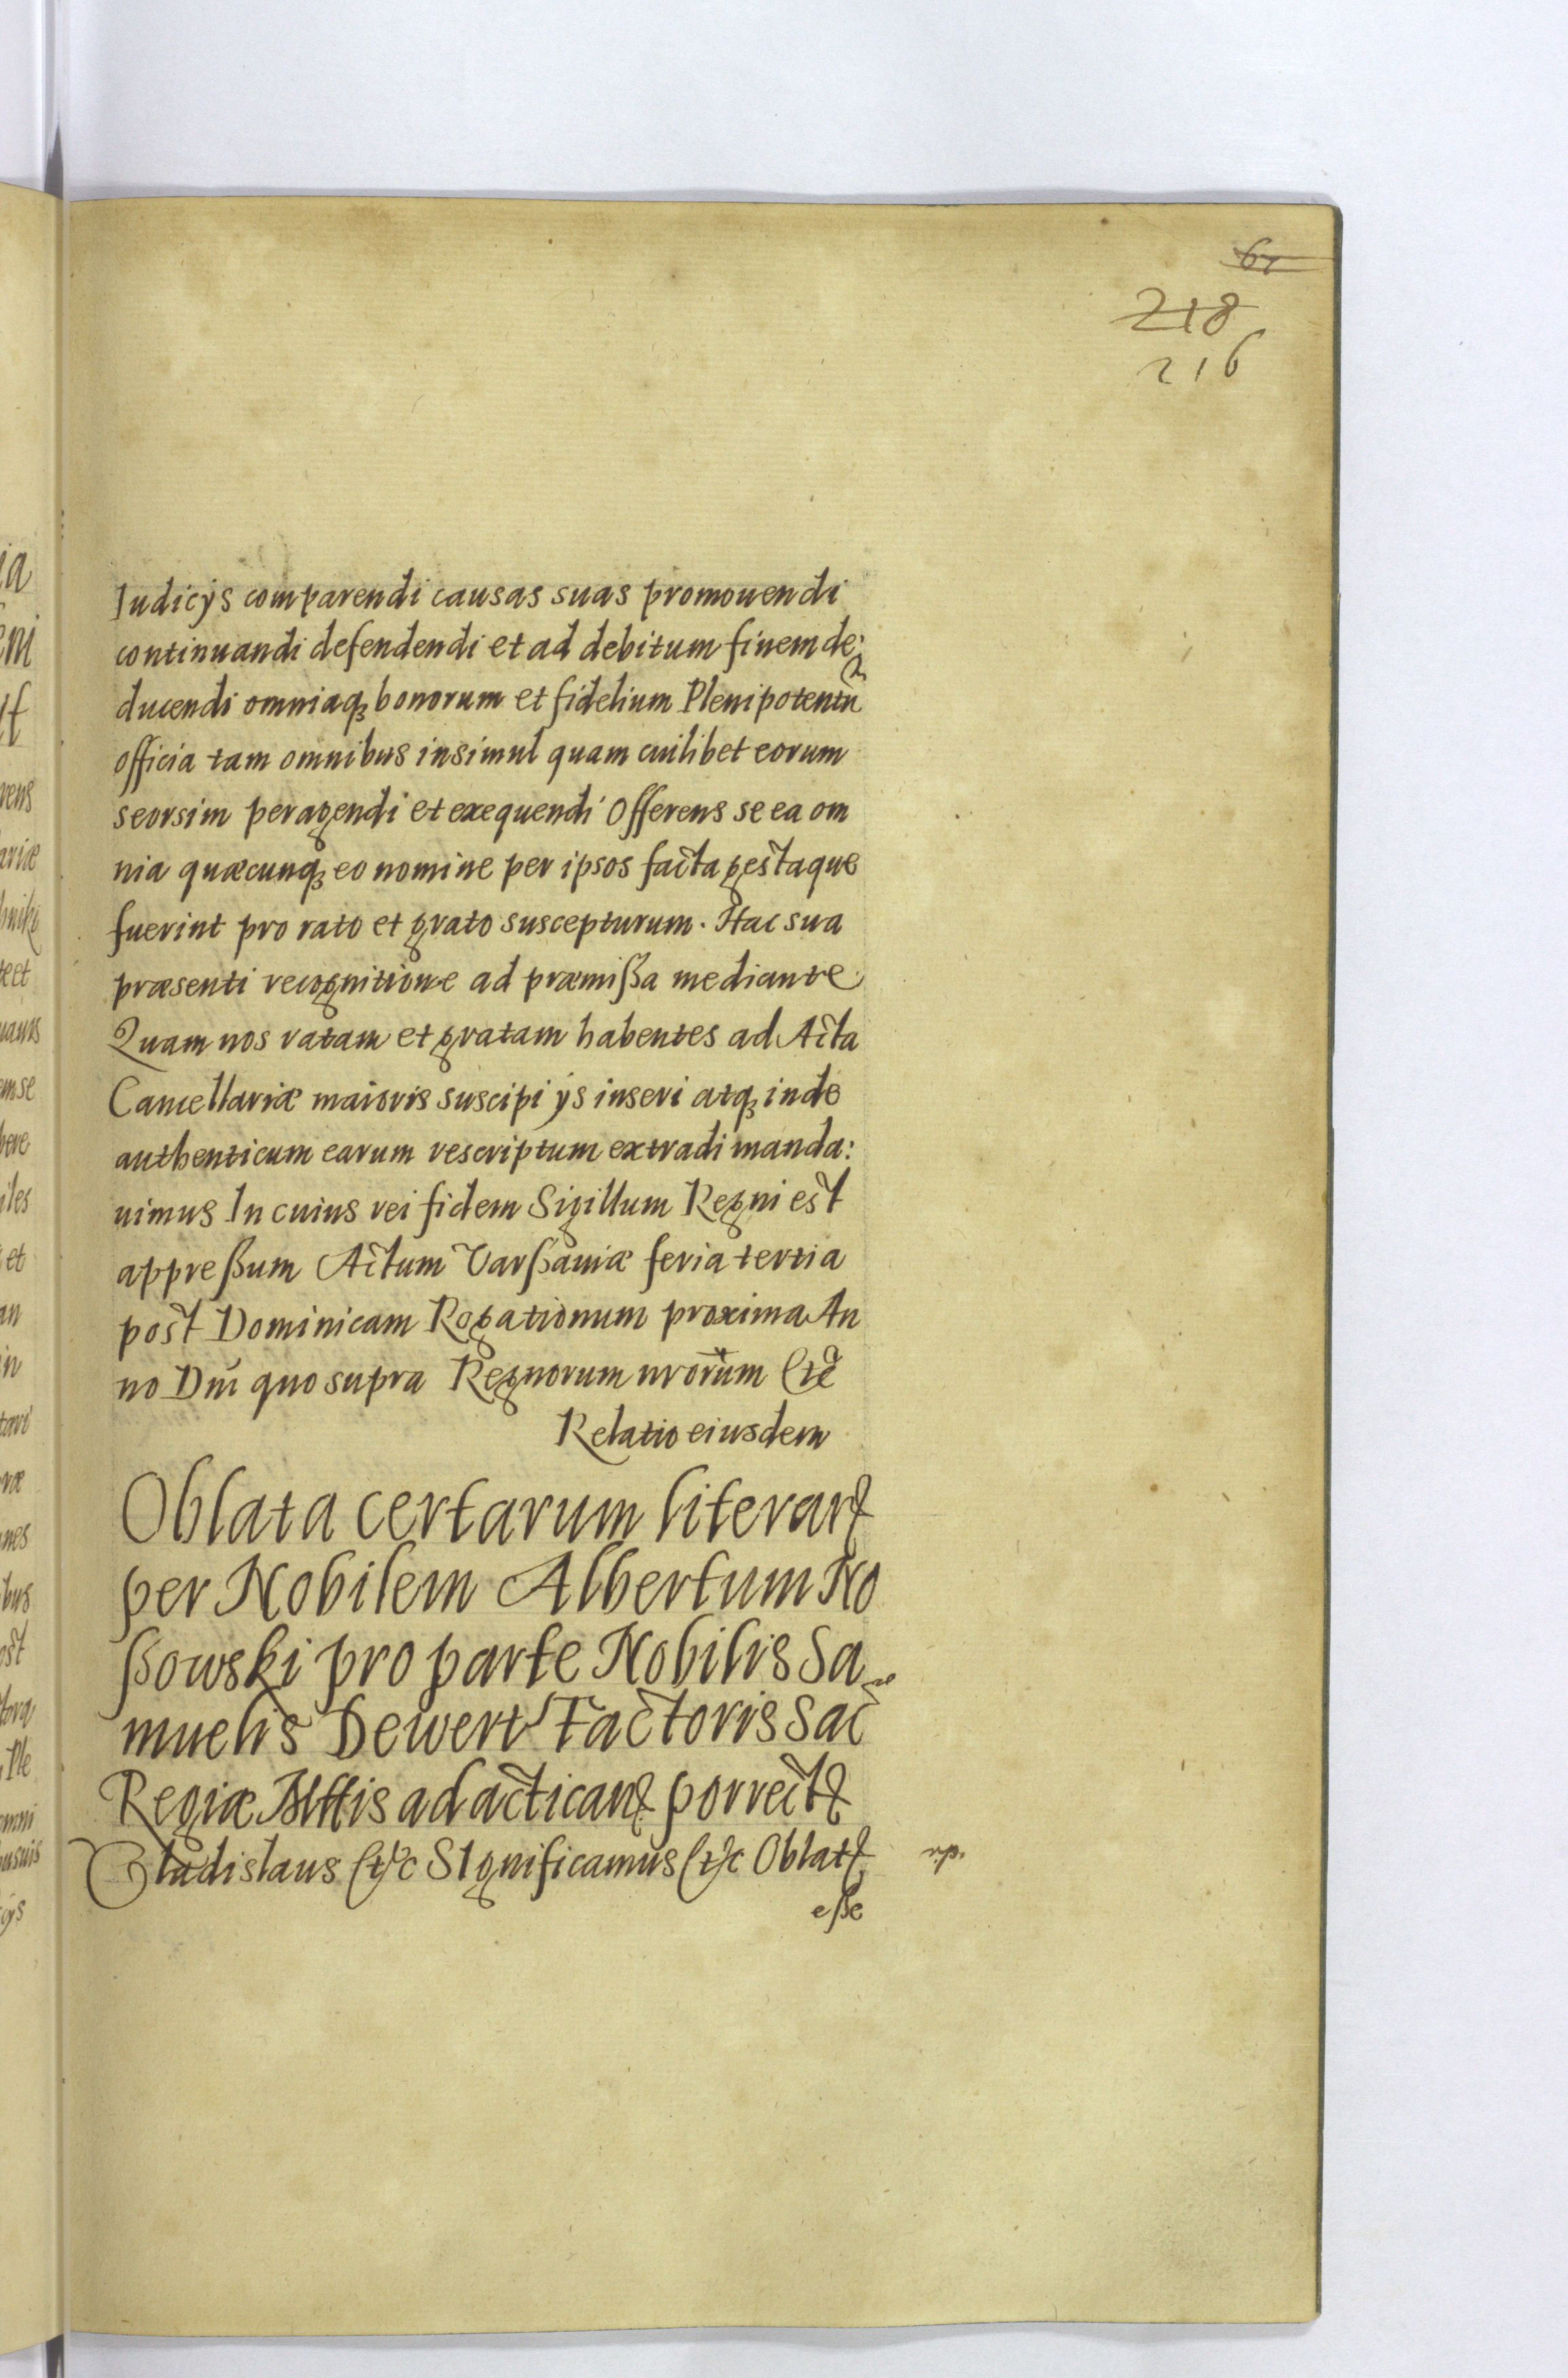 61
218
216
Iudicÿs comparendi causas suas promouendi
continuandi defendendi et ad debitum finem de:
ducendi omniaqꝫ bonorum et fidelium Plenipotentũ
officia tam omnibus insimul quam cuilibet eorum
seorsim peragendi et exequendi Offerens se ea om
nia quæcunqꝫ eo nomine per ipsos facta gestaque
fuerint pro rato et grato suscepturum. Hac sua
præsenti recognitione ad præmißa mediante
Quam nos ratam et gratam habentes ad Acta
Cancellariæ maioris suscipi ÿs inseri atqꝫ inde
authenticum earum rescriptum extradi manda:
uimus In cuius rei fidem Sigillum Regni est
appreßum Actum Varßauiæ feria tertia
post Dominicam Rogationum proxima An
no Dni quo supra Regnorum nrorum Etc
Relatio eiusdem
Oblata certarum literarꝭ
per Nobilem Albertum No
ßowski pro parte Nobilis Sa
muelis Dewert Factoris Sac
Regiæ Mttis ad acticanꝭ porrectꝭ
Vladislaus Etc SIgnificamus Etc Oblatꝭ
eße